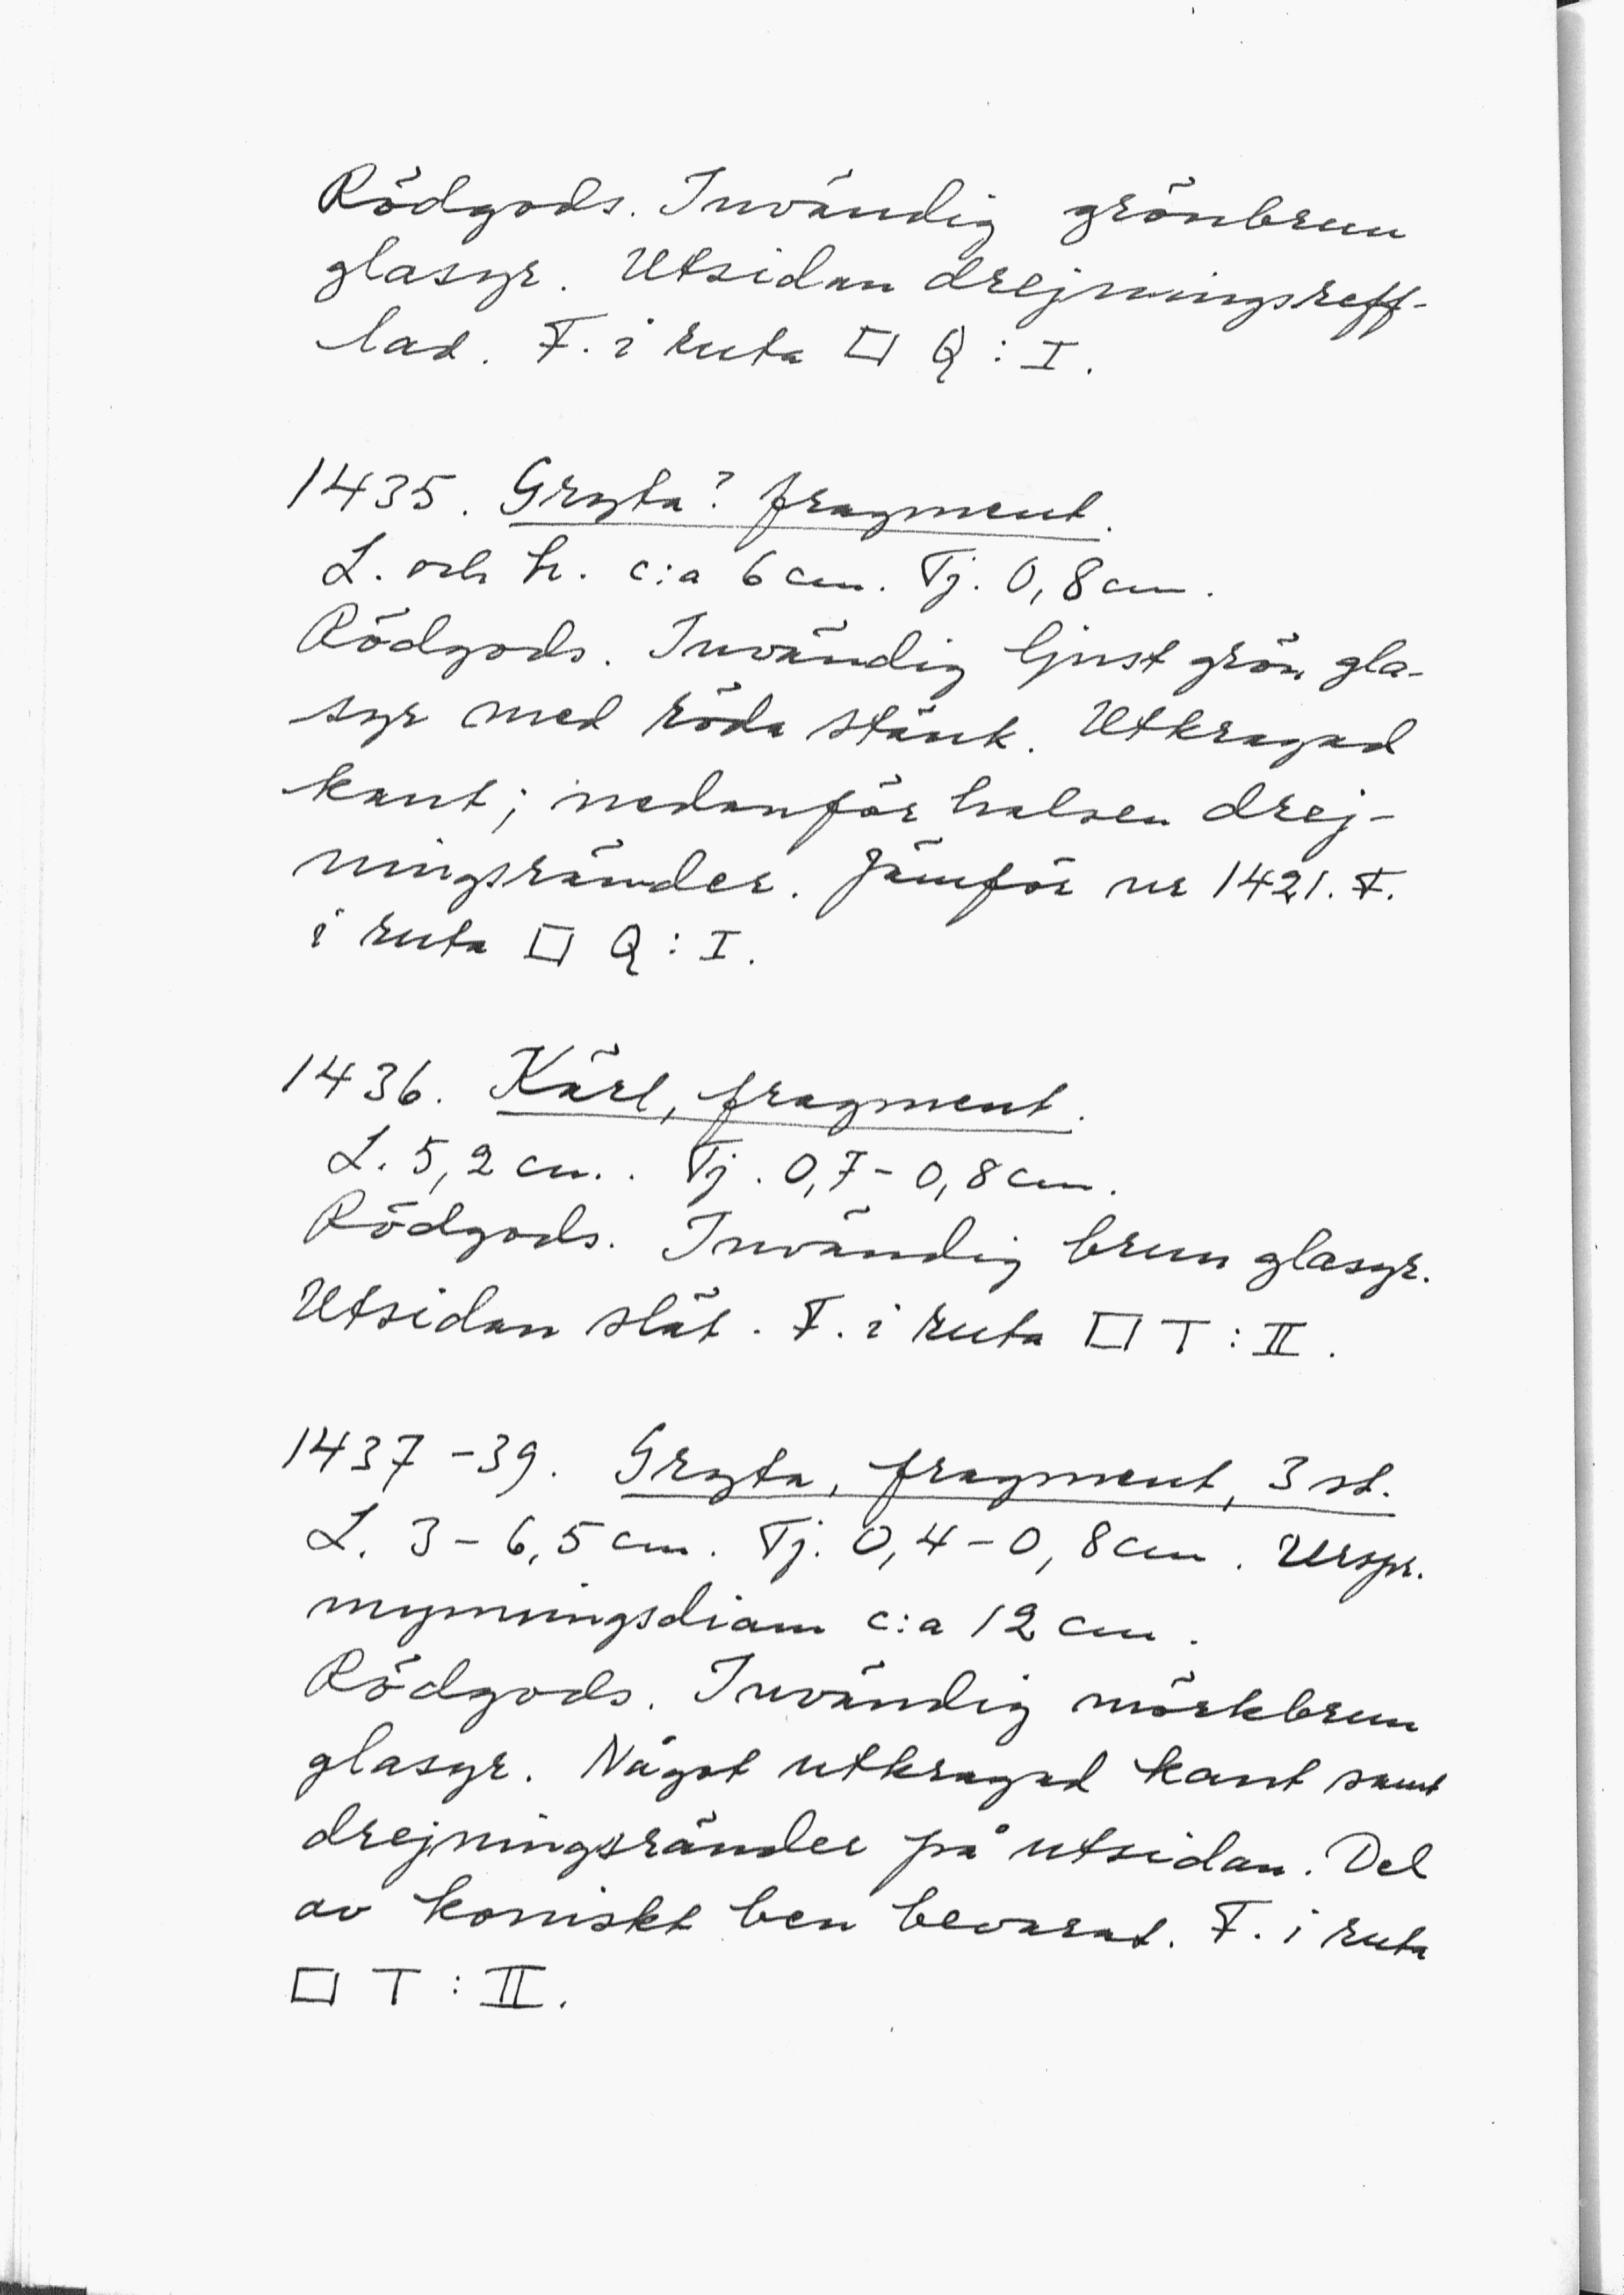 Rödgods. Invändig grönbrun
glasyr. Utsidan drejningsreff-
lad. F. i ruta □ Q : I.
1435. Gryta? fragment.
L. och h. c:a 6 cm. Tj. 0,8 cm.
Rödgods. Invändig ljust grön gla-
syr med röda stänk. Utkragad
kant; nedanför halsen drej-
ningsränder. Jämför nr 1421. F.
i ruta □ Q : I.
1436. Kärl, fragment.
L. 5,2 cm.. Tj. 0,7-0,8 cm.
Rödgods. Invändig brun glasyr.
Utsidan slät. F. i ruta □ T : II.
1437-39. Gryta, fragment, 3 st.
L. 3-6,5 cm. Tj. 0,4-0,8 cm. Urspr.
mynningsdiam c:a 12 cm.
Rödgods. Invändig mörkbrun
glasyr. Något utkragad kant samt
drejningsränder på utsidan. Del
av koniskt ben bevarat. F. i ruta
□ T : II.